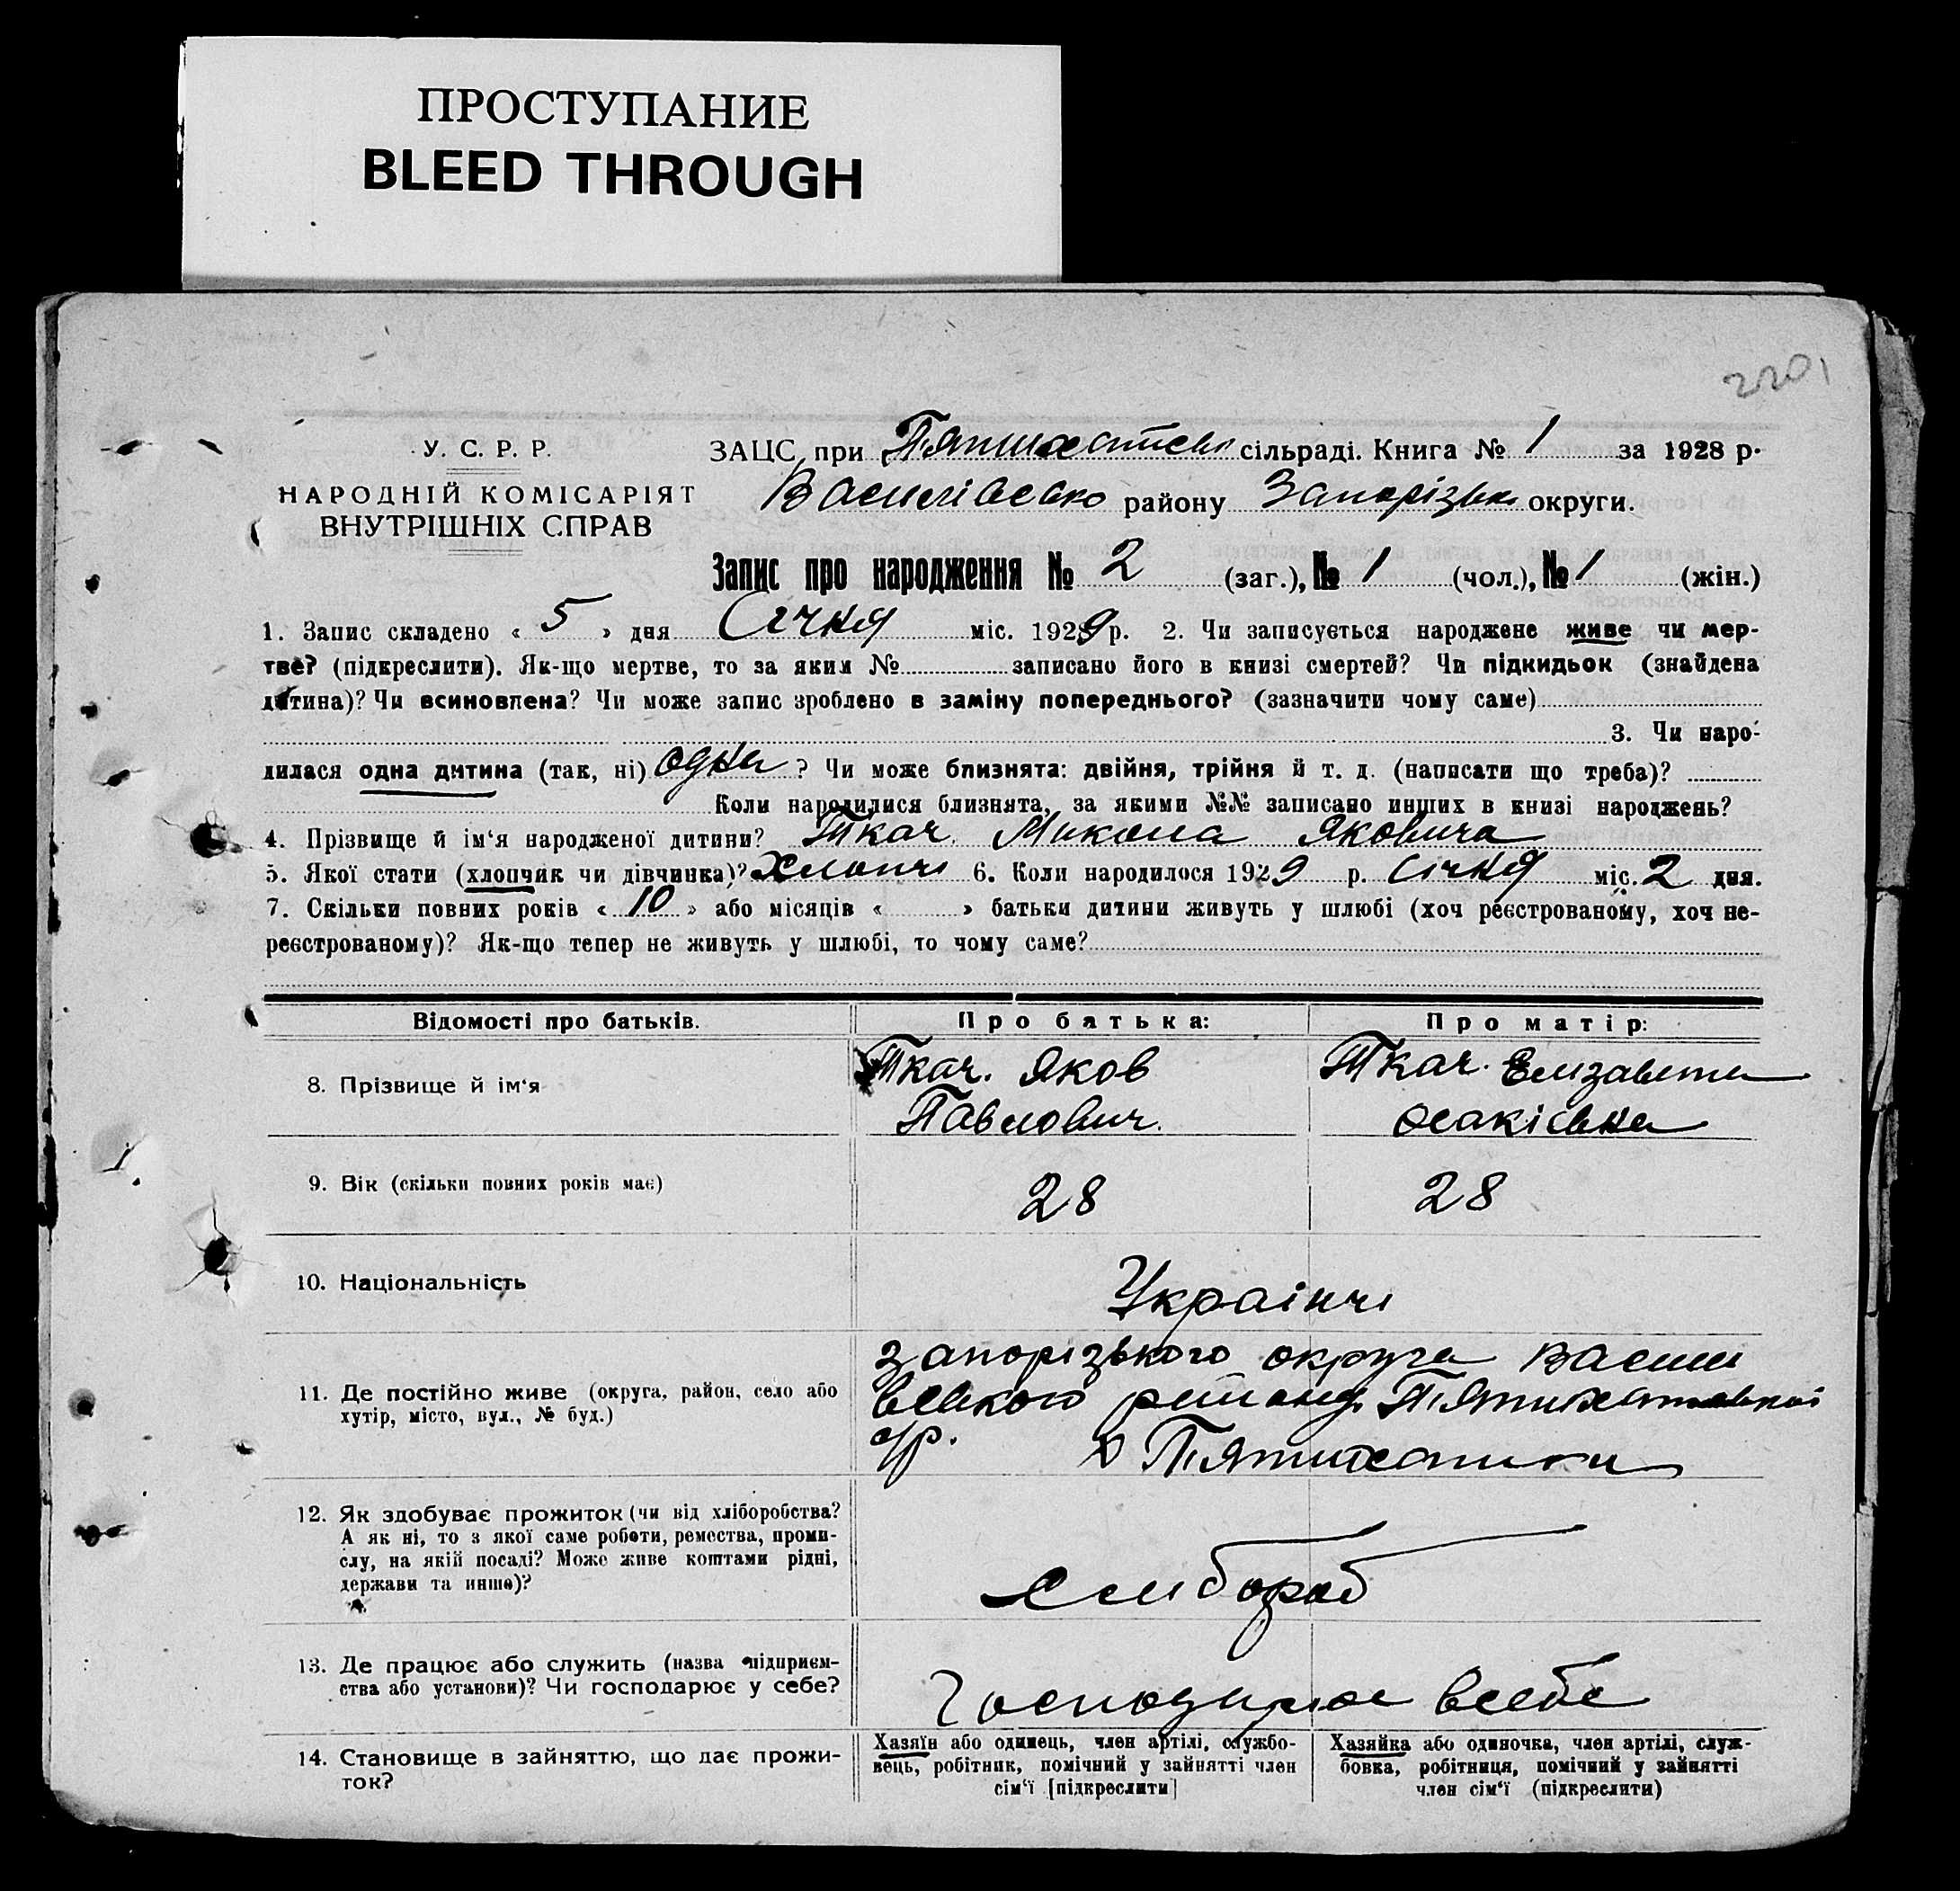 ПРОСТУПАНИЕ
BLEED THROUGH
2201
У. С. Р. Р.
НАРОДНІЙ КОМІСАРІЯТ
ВНУТРІШНІХ СПРАВ
ЗАЦС при Пятихатсько сільраді. Книга № 1 за 1928 р.
Василівсько району Запорізько округи.
Запис про народження № 2 (заг.), № 1 (чол.), № 1 (жін.)
1. Запис складено « 5 » дня Січня міс. 1929 р. 2. Чи записується народжене живе чи мер-
тве? (підкреслити). Як-що мертве, то за яким № записано його в книзі смертей? Чи підкидьок (знайдена
дитина)? Чи всиновлена? Чи може запис зроблено в заміну попереднього? (зазначити чому саме)
3. Чи наро-
дилася одна дитина (так, ні) одна ? Чи може близнята: двійня, трійня й т. д. (написати що треба)?
Коли народилися близнята, за якими №№ записано инших в книзі народжень?
4. Прізвище й ім‘я народженої дитини? Ткач Микола Якович
5. Якої стати (хлопчик чи дівчинка)? 6. Коли народилося 1929 р. Січня міс. 2 дня.
7. Скільки повних років « 10 » або місяців « » батьки дитини живуть у шлюбі (хоч реєстрованому, хоч не-
реєстрованому)? Як-що тепер не живуть у шлюбі, то чому саме?
Відомості про батьків. Про батька: Про матір:
8. Прізвище й ім‘я Ткач. Яков Ткач. Елизавета
Павлович. Осакієвна
9. Вік (скільки повних років має) 28 28
10. Національність Українці
11. Де постійно живе (округа, район, село або
хутір, місто, вул., № буд.)
Запорізького округа Васили
вського району Пятихатської
с/р. Пятихатки
12. Як здобуває прожиток (чи від хліборобства?
А як ні, то з якої саме роботи, ремества, проми-
слу, на якій посаді? Може живе коштами рідні,
держави та инше)?
Хлибороб
13. Де працює або служить (назва підприєм-
ства або установи)? Чи господарює у себе?
Господарює всебе
14. Становище в зайняттю, що дає прожи-
ток?
Хазяїн або одинець, член артілі, службо-
вець, робітник, помічний у зайнятті член
сім‘ї [підкреслити]
Хазяйка або одиночка, член артілі, служ-
бовка, робітниця, помічний у зайнятті
член сім‘ї (підкреслити)